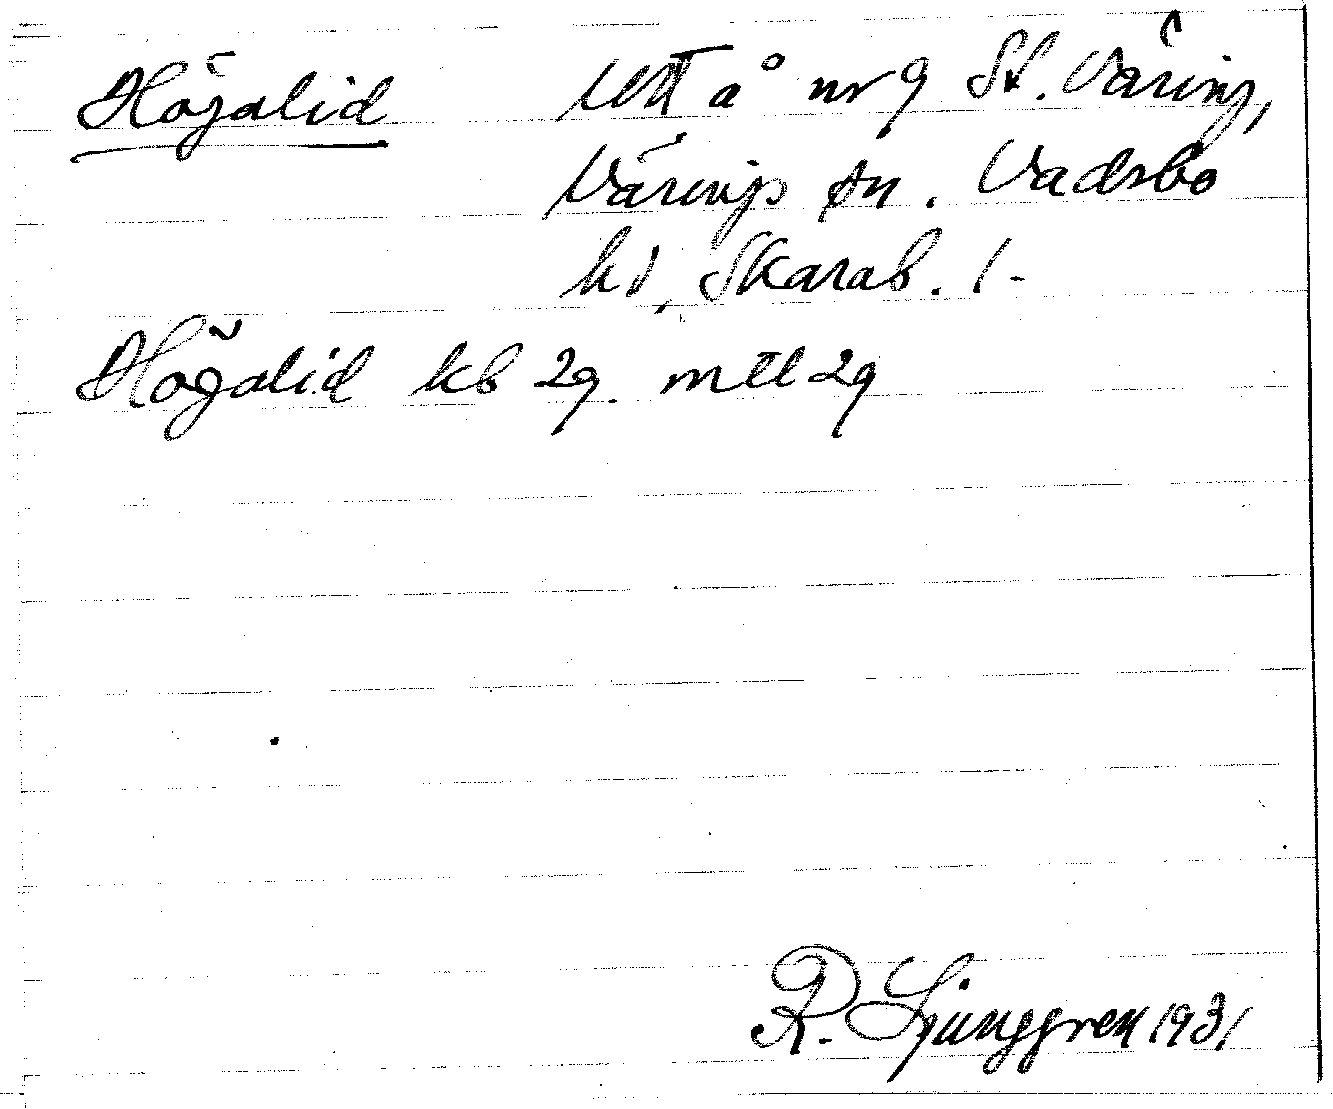 Högalid Utt å nr 9 St. Väring,
Värings sn. Vadsbo
hd, Skarab. l-
Högalid kb 29. mtl 29
R. Ljunggren 1931